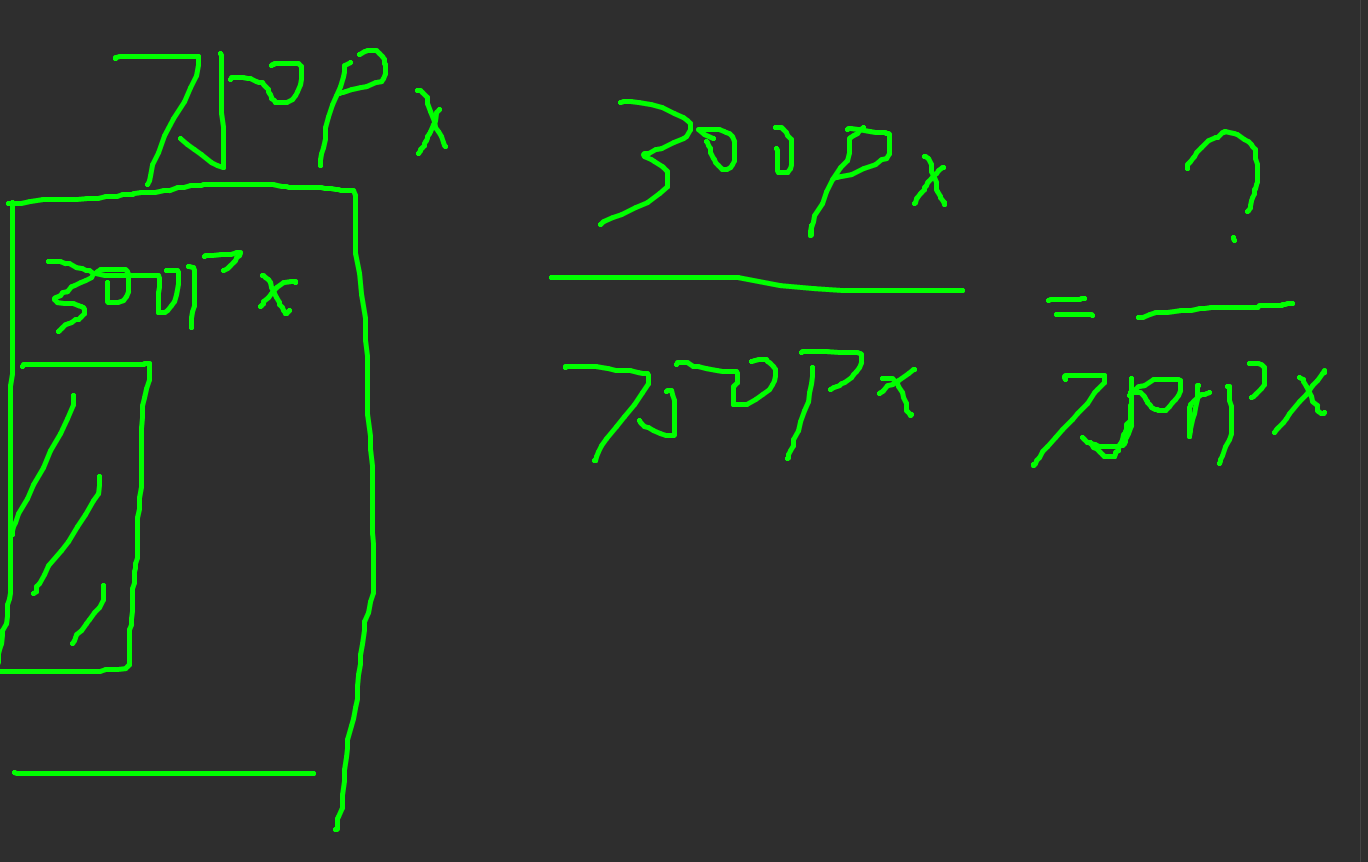 750px
300px
300px
750px
=
?
750rpx